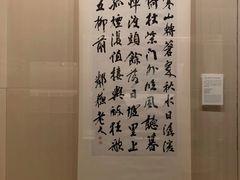 寒山轉蒼翠秋水日潺湲
倚杖柴門外臨風聽暮
蟬渡頭餘落日墟里上
孤煙復值接輿醉狂歌
五柳前 老人